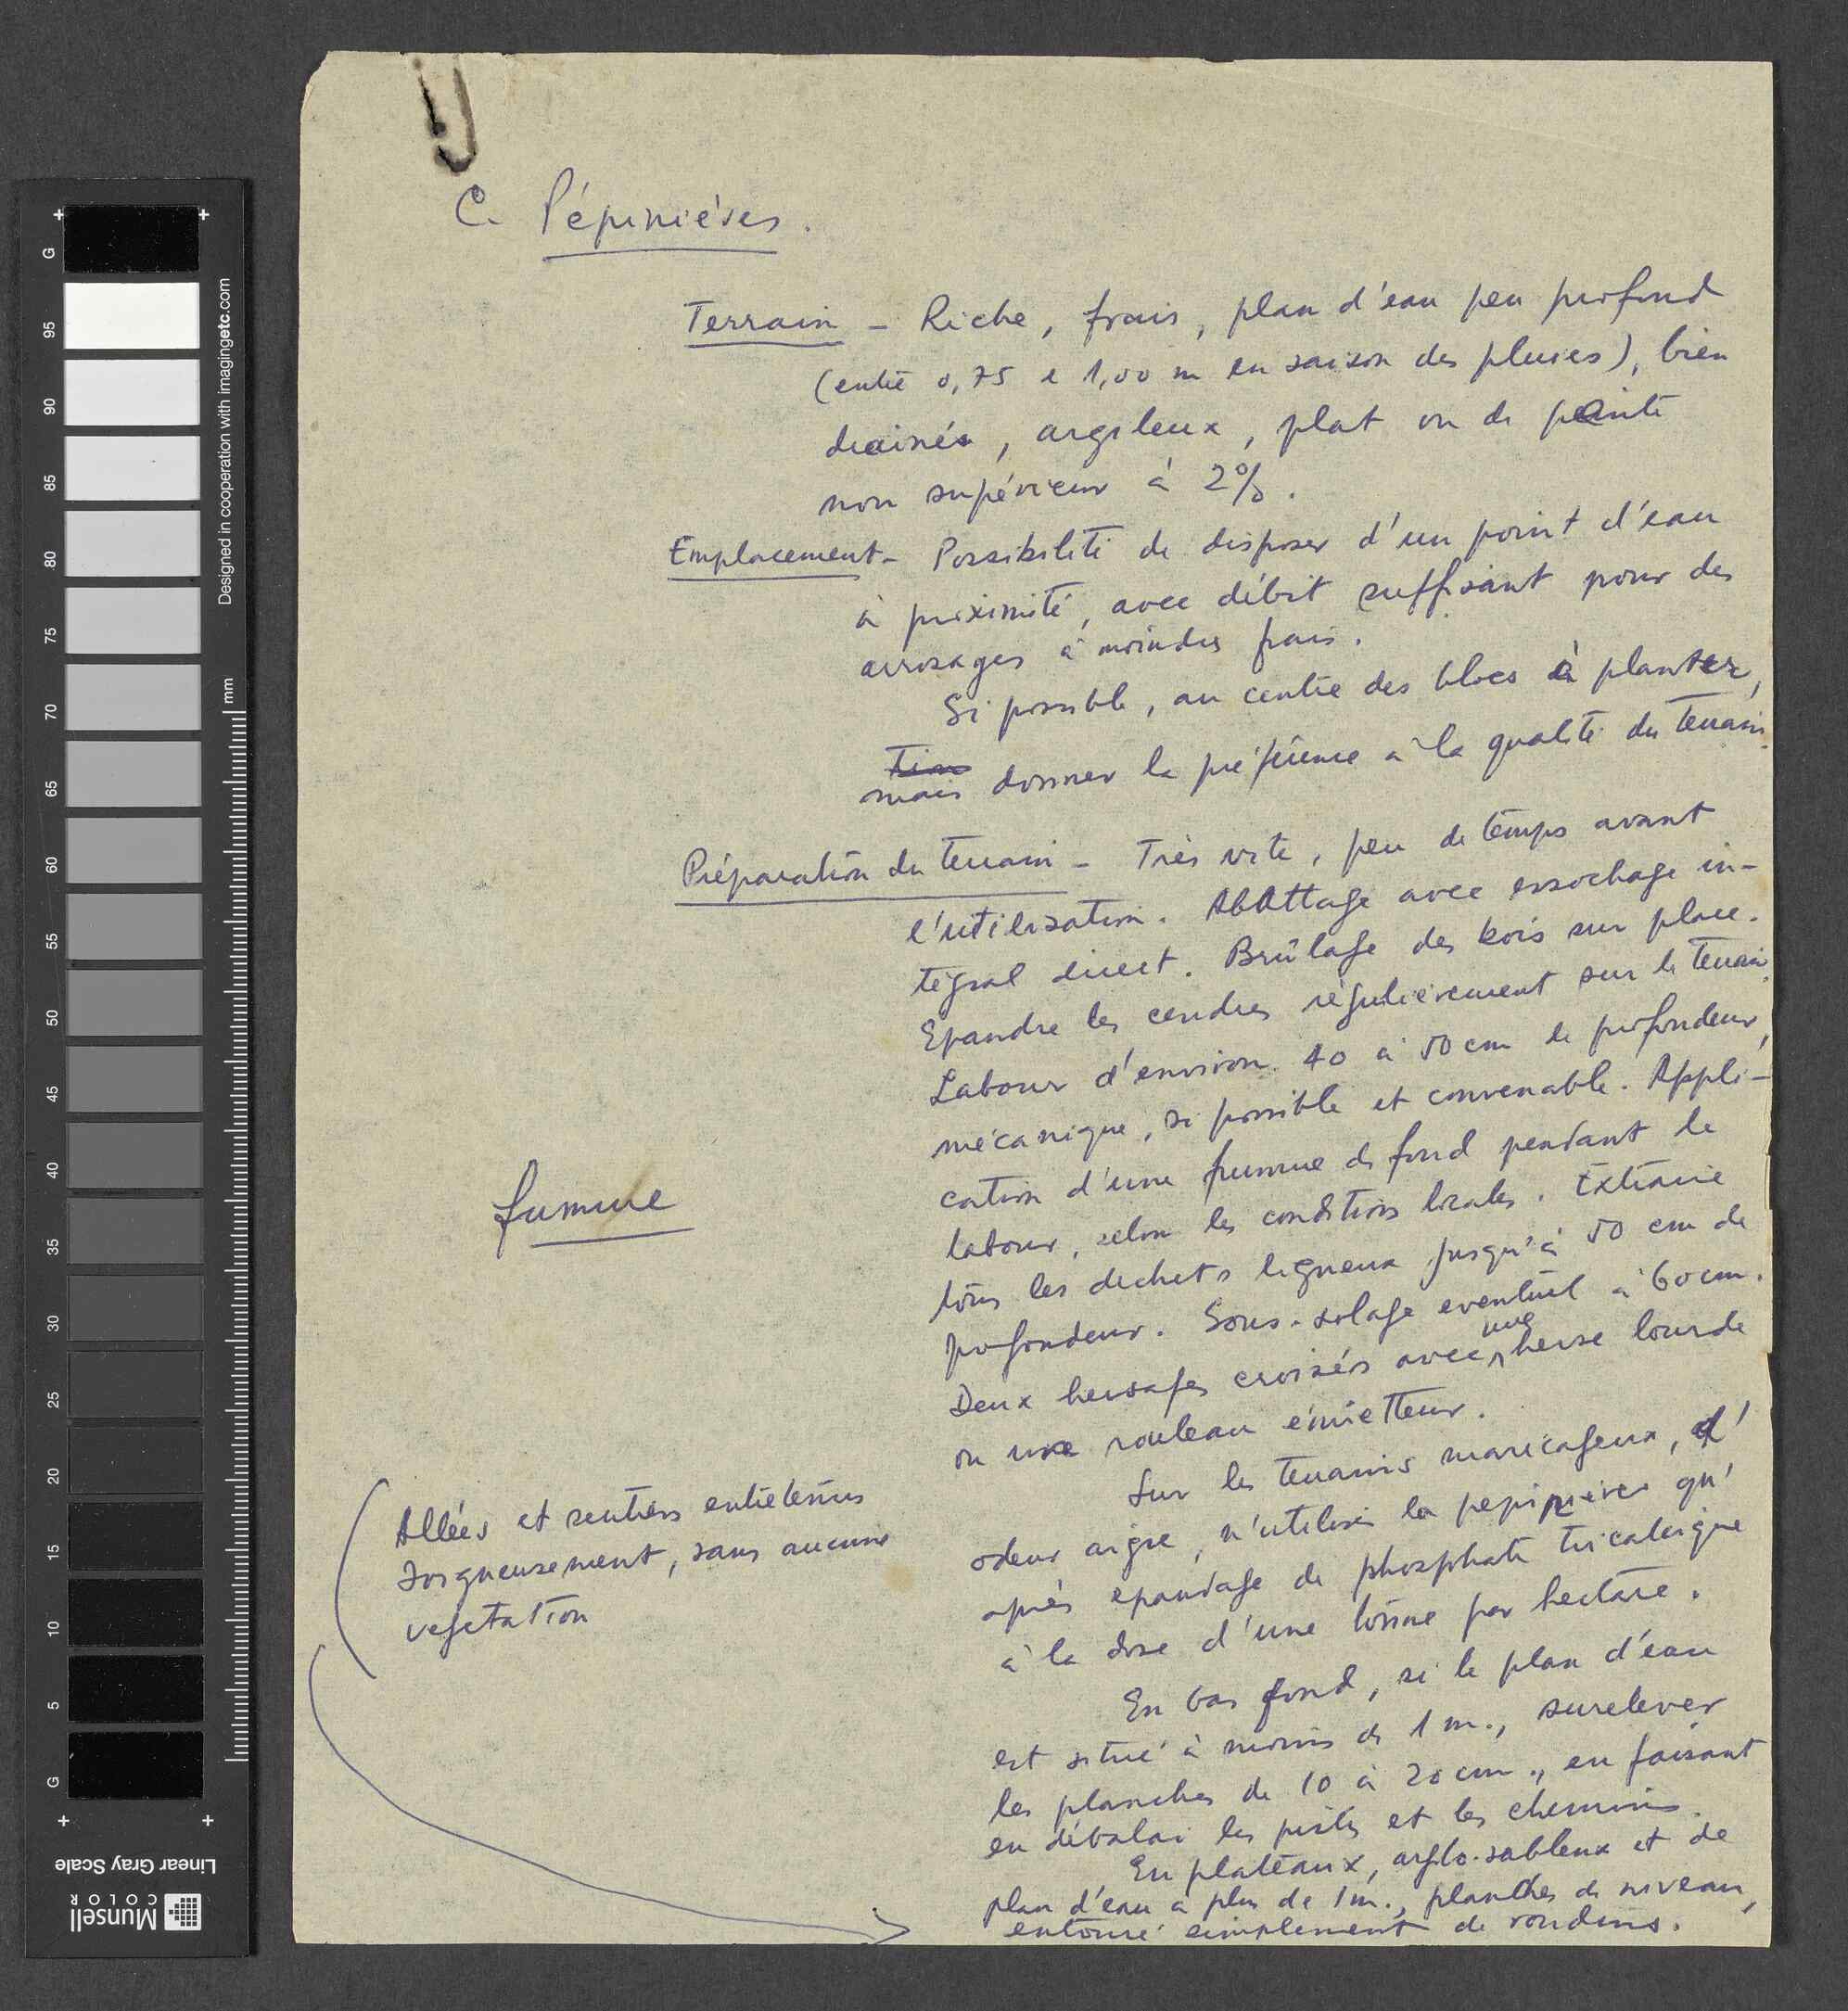 C. Pépinières.
Terrain – Riche, frais, plan d'eau peu profond
(entre 0,75 e 1,00 m en saison des pluies), bien
drainés, argileux, plat ou de pente
non supérieur à 2%.
Emplacement – Possibilité de disposer d'un point d'eau
à proximité, avec débit suffisant pour des
arrosages à moindres frais.
Si possible, au centre des blocs à planter,
mais donner la préférence à la qualité du terrain.
Préparation du terrain – Très vite, peu de temps avant
l'utilisation. Abattage avec essochage in-
tégral direct. Brûlage des bois sur place.
Epandre les cendres régulièrement sur le terrain.
Labour d'environ 40 à 50 cm de profondeur,
mécanique, si possible et convenable. Appli-
cation d'une fumure de fond pendant le
labour, selon les conditions locales. Extraire
tous les dechets ligneux jusqu'à 50 cm de
profondeur. Sous-solage eventuel à 60 cm.
Deux hersages croisés avec une herse lourde
ou une rouleau émietteur.
Sur les terrains marécageux, d'
odeur aigre, n'utiliser la pepinière qu'
après epandage de phosphate tricalcique
à la dose d'une tonne par hectare.
En bas fond, si le plan d'eau
est situé à moins de 1 m., surelever
les planches de 10 à 20 cm., en faisant
en déblai les pistes et les chemins.
En plateaux, arglo-sableux et de
plan d'eau à plus de 1 m., planches de niveau,
entouré simplement de rondins.
fumure
Allées et sentiers entretenus
soigneusement, sans aucune
vegetation
G
95
90
85
80
75
70
65
60
55
50
45
40
35
30
25
20
15
10
5
G
mm
Designed in cooperation with imagingetc.com
Linear Gray Scale
Munsell
COLOR